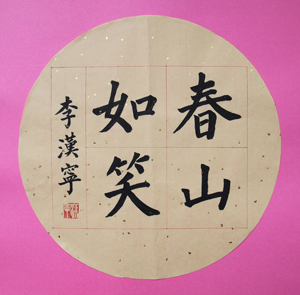 春山
如笑
李漢寧